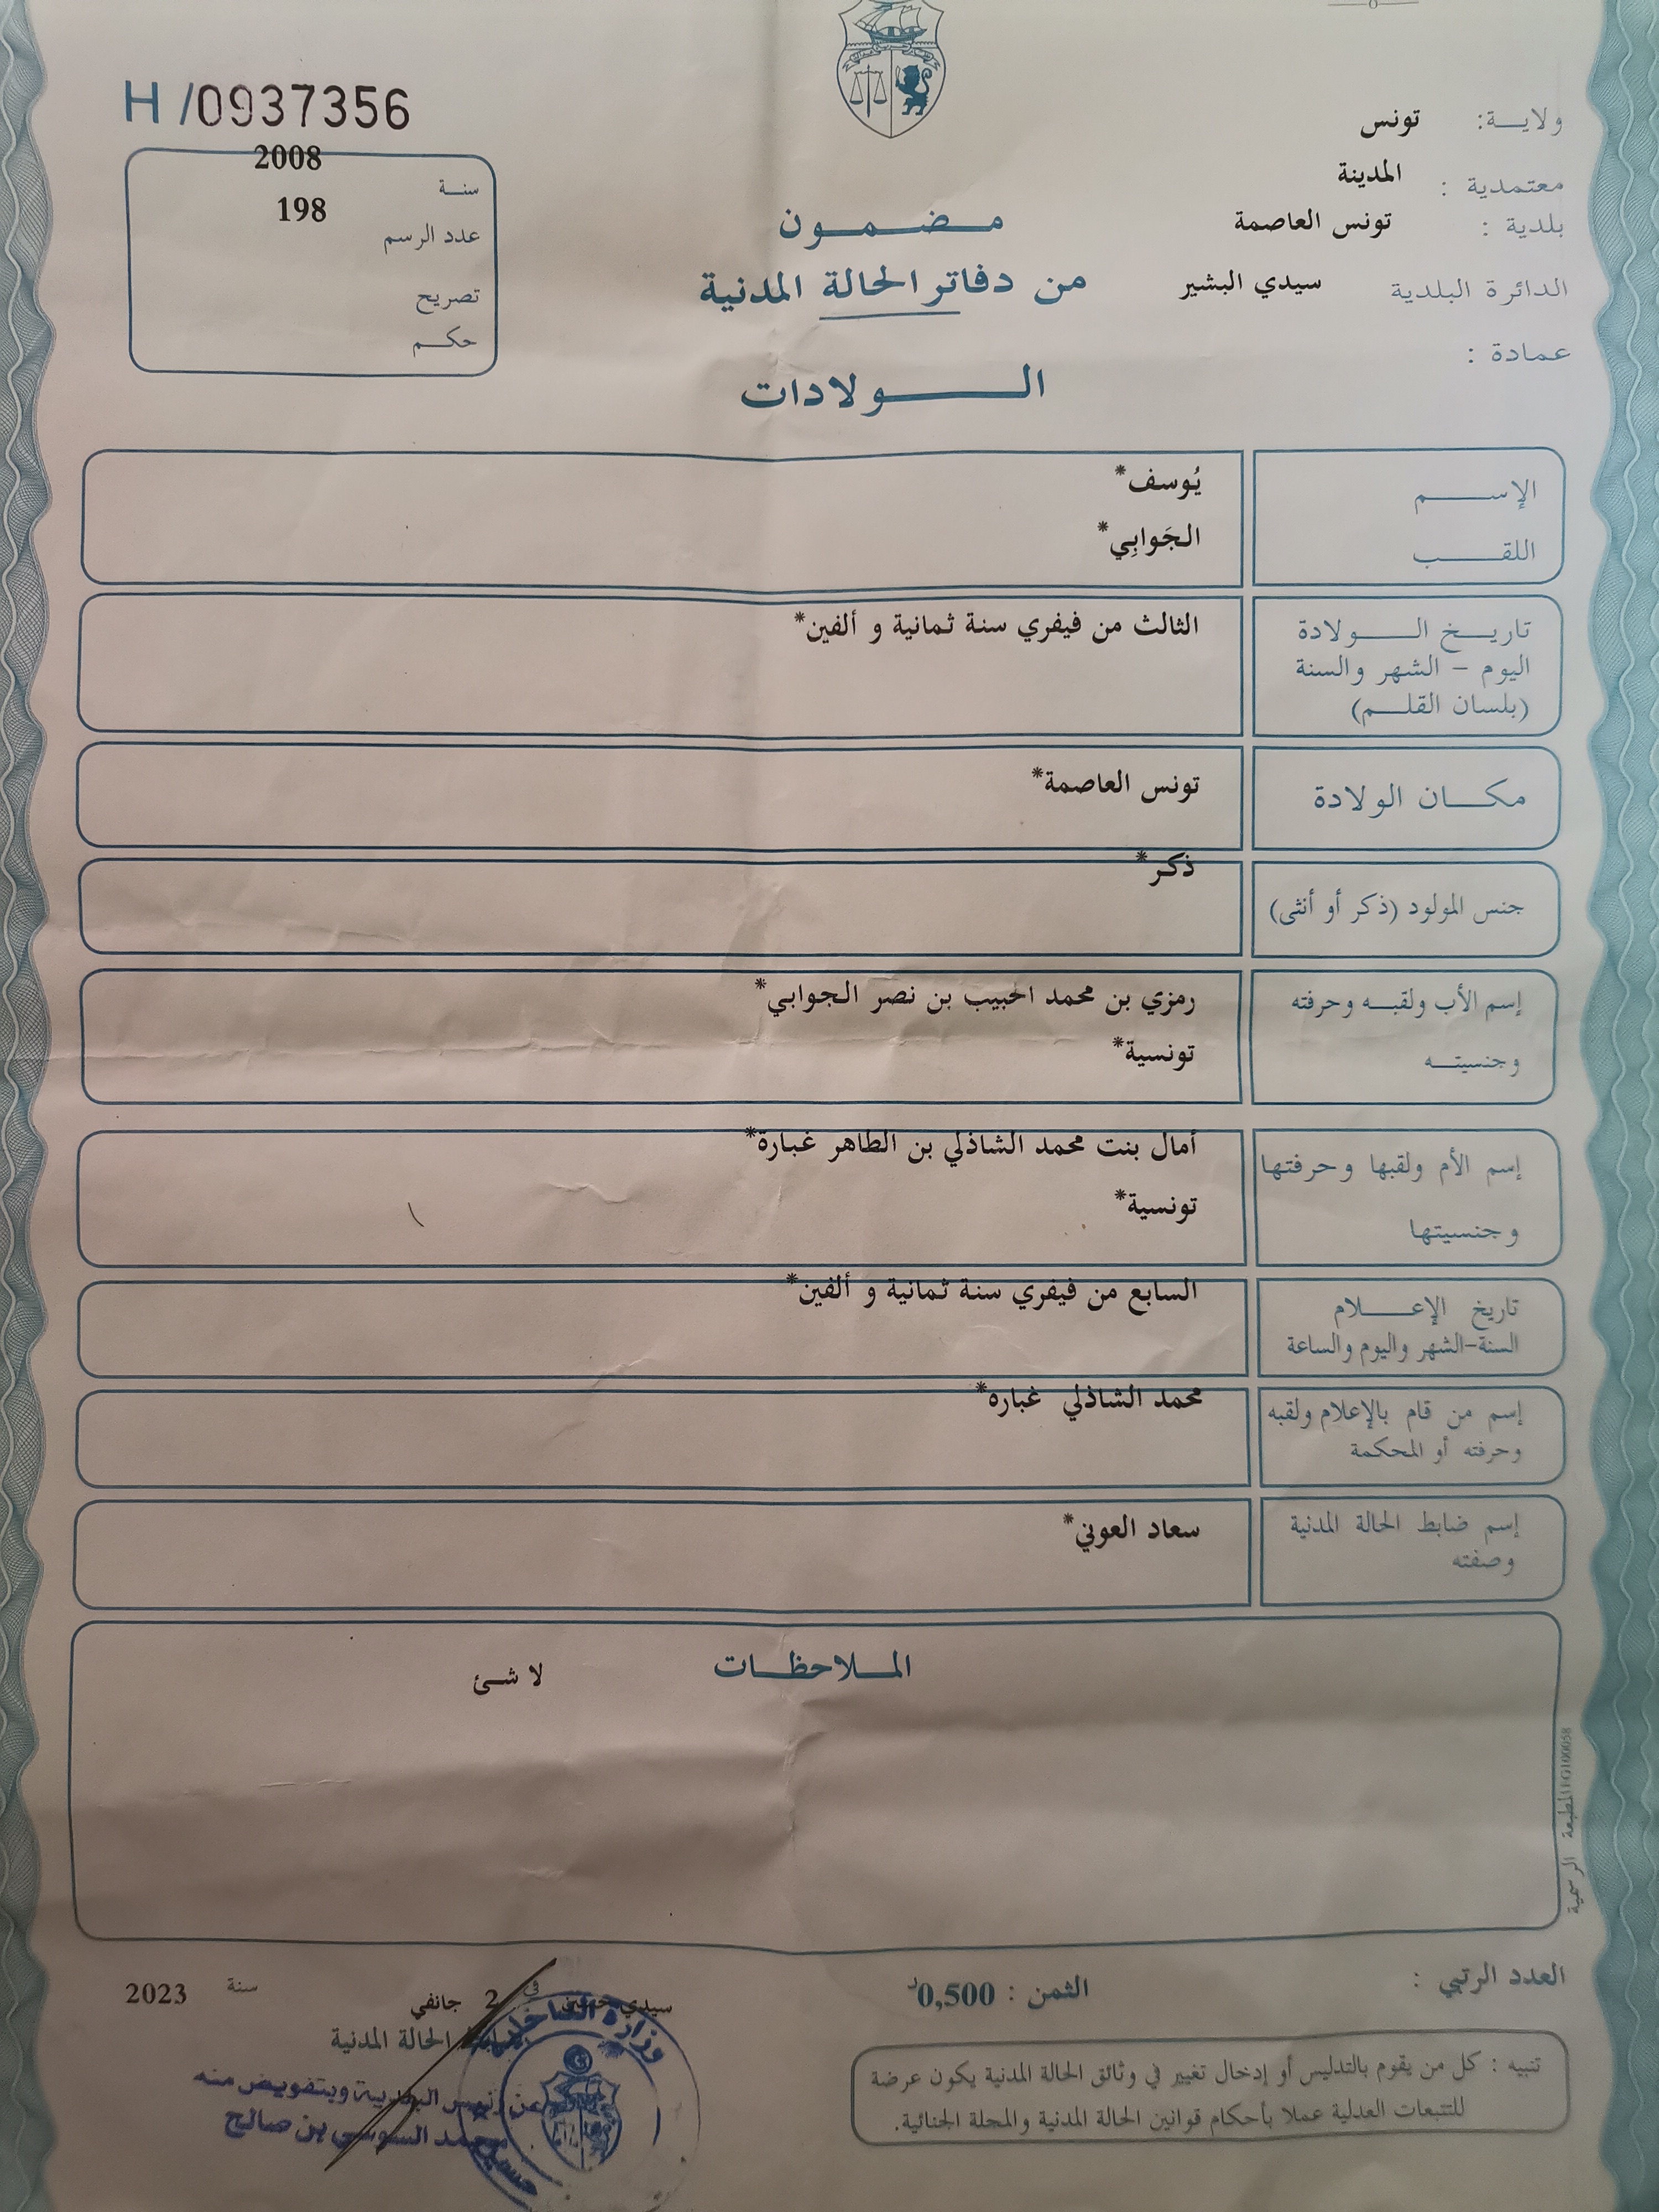 H /0937356
ولاية: تونس
معتمدية : المدينة
بلدية : تونس العاصمة
الدائرة البلدية سيدي البشير
عمادة :
سنة 2008
عدد الرسم 198
تصريح
حكم
مضمون
من دفاتر الحالة المدنية
الولادات
الإسم يُوسف*
اللقب الجَوابِي*
تاريخ الولادة الثالث من فيفري سنة ثمانية و ألفين*
اليوم - الشهر والسنة
(بلسان القلم)
مكان الولادة تونس العاصمة*
جنس المولود (ذكر أو أنثى) ذكر*
إسم الأب ولقبه وحرفته رمزي بن محمد الحبيب بن نصر الجوابي*
وجنسيته تونسية*
إسم الأم ولقبها وحرفتها أمال بنت محمد الشاذلي بن الطاهر غبارة*
وجنسيتها تونسية*
تاريخ الإعلام السابع من فيفري سنة ثمانية و ألفين*
السنة-الشهر واليوم والساعة
إسم من قام بالإعلام ولقبه محمد الشاذلي غباره*
وحرفته أو المحكمة
إسم ضابط الحالة المدنية سعاد العوني*
وصفته
الملاحظات
لا شئ
المطبعة الرسمية
العدد الرتبي :
الثمن : 0,500د
سيدي في 2 جانفي سنة 2023
ضابط الحالة المدنية
عن رئيس البلدية وبتفويض منه
محمد السوسي بن صالح
وزارة الداخلية
تنبيه : كل من يقوم بالتدليس أو إدخال تغيير في وثائق الحالة المدنية يكون عرضة
للتتبعات العدلية عملا بأحكام قوانين الحالة المدنية والمجلة الجنائية.